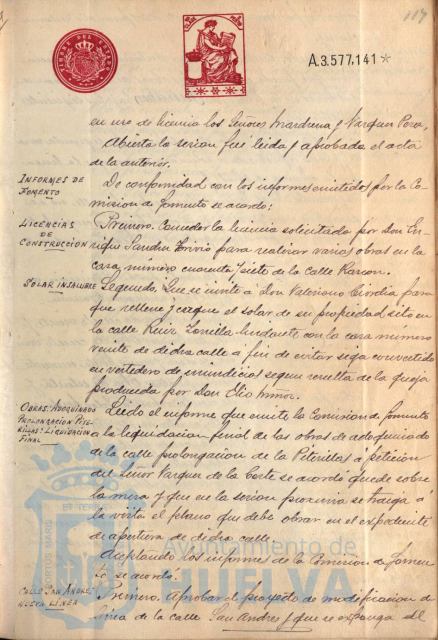 117
TIMBRE DEL ESTADO
A.3.577,141
en uso de licencia los Señores Mardrena y Vazquez Perez,
Abierta la sesion fue leida y aprobada el acta
de la anterior.
INFORMES DE FOMENTO
De conformidad con los informes emitidos por la Co-
mision de Fomento se acordo:
LICENCIAS DE CONSTRUCCION
Primero. Conceder la licencia solicitada por Don En-
rique Sanchez para realizar varias obras en la
casa numero cuarenta y siete de la calle Rascon.
SOLAR INSALUBRE
Segundo. Que se invite a Don Valeriano para
que rellene y cerque el solar de su propiedad sito en
la calle Ruiz Zorrilla lindante con la casa numero
veinte de dicha calle a fin de evitar siga convertido
en vertedero de inmundicias segun resulta de la queja
producida por Don Elio Muñoz.
OBRAS: ADOQUINADO PROLONGACION PETE-RILLAS: LIQUIDACION FINAL
Leido el informe que emite la Comision de Fomento
a la liquidacion final de las obras de adoquinado
de la calle prolongacion de la Peterillas a peticion
del Señor Vazquez de la Corte se acordó quede sobre
la mesa y que en la sesion proxima se traiga á
la vista el plano que debe obrar en el expediente
de apertura de dicha calle.
Aceptando los informes de la Comision de Fomen-
to se acordó:
CALLE SAN ANDRES NUEVA LINEA
Primero. Aprobar el proyecto de modificacion de
linea de la calle San Andres y que se exponga al
PORTUS MARIS
Ayuntamiento de
HUELVA